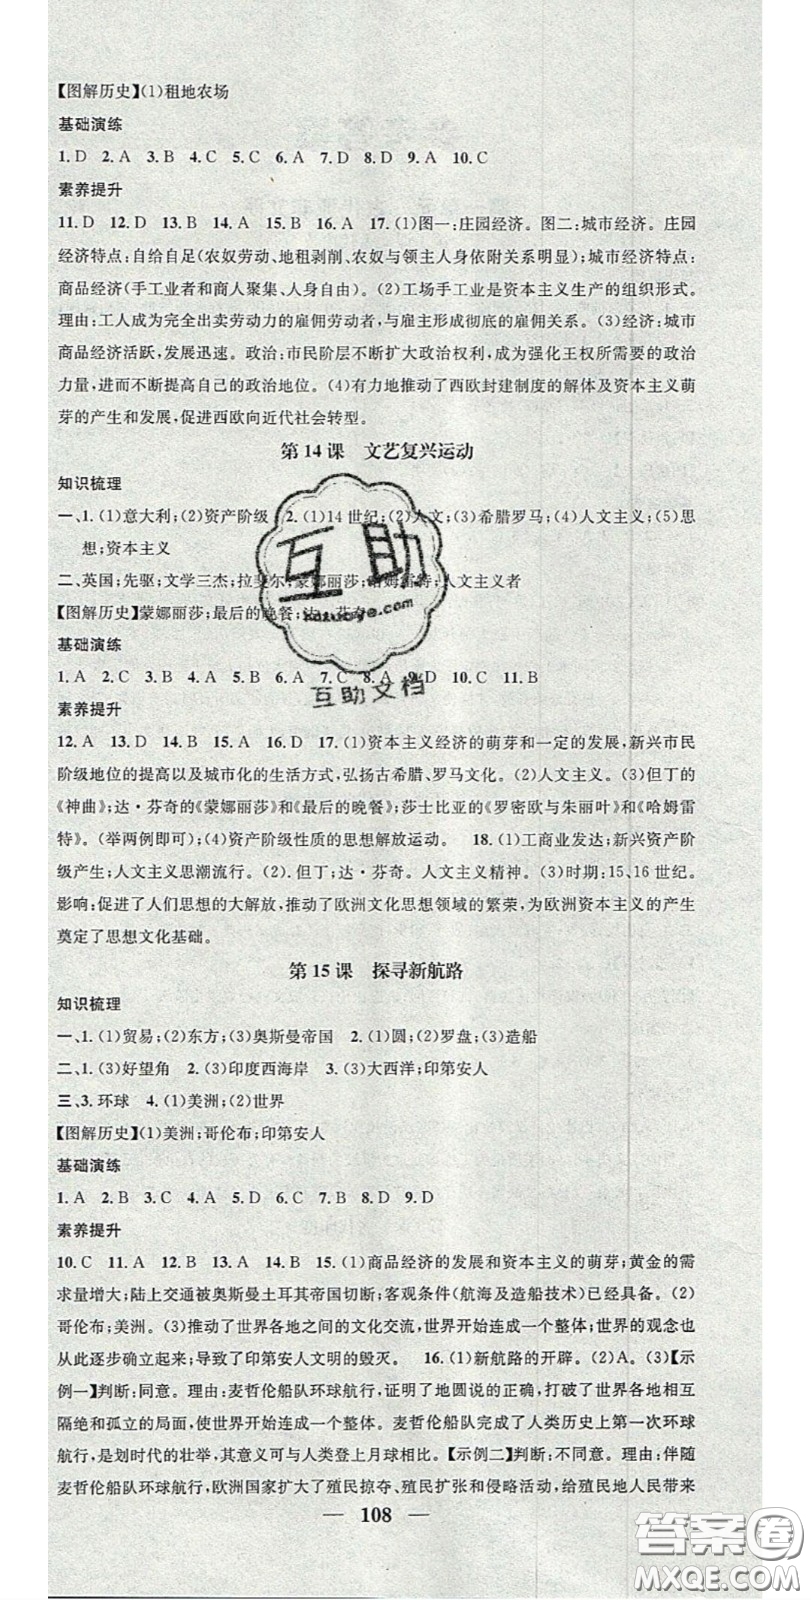 【图解历史】(1)租地农场
基础演练
1. D 2. A 3. B 4. C 5. C 6. A 7. D 8. D 9. A 10. C
素养提升
11. D 12. D 13. B 14. A 15. B 16. A 17. (1)图一:庄园经济。图二:城市经济。庄园
经济特点:自给自足(农奴劳动、地租剥削、农奴与领主人身依附关系明显);城市经济特点:
商品经济(手工业者和商人聚集、人身自由)。(2)工场手工业是资本主义生产的组织形式。
理由:工人成为完全出卖劳动力的雇佣劳动者,与雇主形成彻底的雇佣关系。(3)经济:城市
商品经济活跃,发展迅速。政治:市民阶层不断扩大政治权利,成为强化王权所需要的政治
力量,进而不断提高自己的政治地位。(4)有力地推动了西欧封建制度的解体及资本主义萌
芽的产生和发展,促进西欧向近代社会转型。
第 14 课 文艺复兴运动
知识梳理
一、1. (1)意大利;(2)资产阶级 2. (1)14 世纪;(2)人文;(3)希腊罗马;(4)人文主义;(5)思
想;资本主义
二、英国;先驱;文学三杰;拉斐尔;蒙娜丽莎;哈姆雷特;人文主义者
【图解历史】蒙娜丽莎;最后的晚餐;达·芬奇
基础演练
1. A 2. C 3. B 4. B 5. A 6. A 7. C 8. A 9. D 10. C 11. B
素养提升
12. A 13. D 14. B 15. B 16. D 17. (1)资本主义经济的萌芽和一定的发展,新兴市民
阶级地位的提高以及城市化的生活方式,弘扬古希腊、罗马文化。(2)人文主义。(3)但丁的
《神曲》;达·芬奇的《蒙娜丽莎》和《最后的晚餐》;莎士比亚的《罗密欧与朱丽叶》和《哈姆雷
特》。(举两例即可);(4)资产阶级性质的思想解放运动。 18. (1)工商业发达;新兴资产阶
级产生;人文主义思潮流行。(2). 但丁;达·芬奇。人文主义精神。(3)时期:15、16 世纪。
影响:促进了人们思想的大解放,推动了欧洲文化思想领域的繁荣,为欧洲资本主义的产生
奠定了思想文化基础。
第 15 课 探寻新航路
知识梳理
一、1. (1)贸易;(2)东方;(3)奥斯曼帝国 2. (1)圆;(2)罗盘;(3)造船
二、1. (3)好望角 2. (3)印度西海岸 3. (3)大西洋;印第安人
三、3. 环球 4. (1)美洲;(2)世界
【图解历史】(1)美洲;哥伦布;印第安人
基础演练
1. A 2. B 3. C 4. A 5. D 6. C 7. B 8. D 9. D
素养提升
10. C 11. A 12. B 13. A 14. B 15. (1)商品经济的发展和资本主义的萌芽;黄金的需
求量增大;陆上交通被奥斯曼土耳其帝国切断;客观条件(航海及造船技术)已经具备。(2)
哥伦布;美洲。(3)推动了世界各地之间的文化交流,世界开始连成一个整体;世界的观念也
从此逐步确立起来;导致了印第安人文明的毁灭。 16. (1)新航路的开辟。(2)A。(3)【示
例一】判断:同意。理由:麦哲伦船队环球航行,证明了地圆说的正确,打破了世界各地相互
隔绝和孤立的局面,使世界开始连成一个整体。麦哲伦船队完成了人类历史上第一次环球
航行,是划时代的壮举,其意义可与人类登上月球相比。【示例二】判断:不同意。理由:伴随
麦哲伦船队环球航行,欧洲国家扩大了殖民掠夺、殖民扩张和侵略活动,给殖民地人民带来
— 108 —
互助
互助文档
答案圈
MXQE.COM